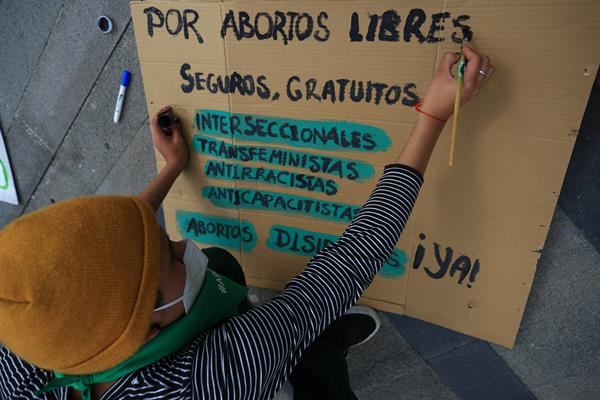 POR ABORTOS LIBRES
SEGUROS, GRATUITOS
INTERSECCIONALES
TRANSFEMINISTAS
ANTIRRACISTAS
ANTICAPACITISTAS
ABORTOS
¡YA!